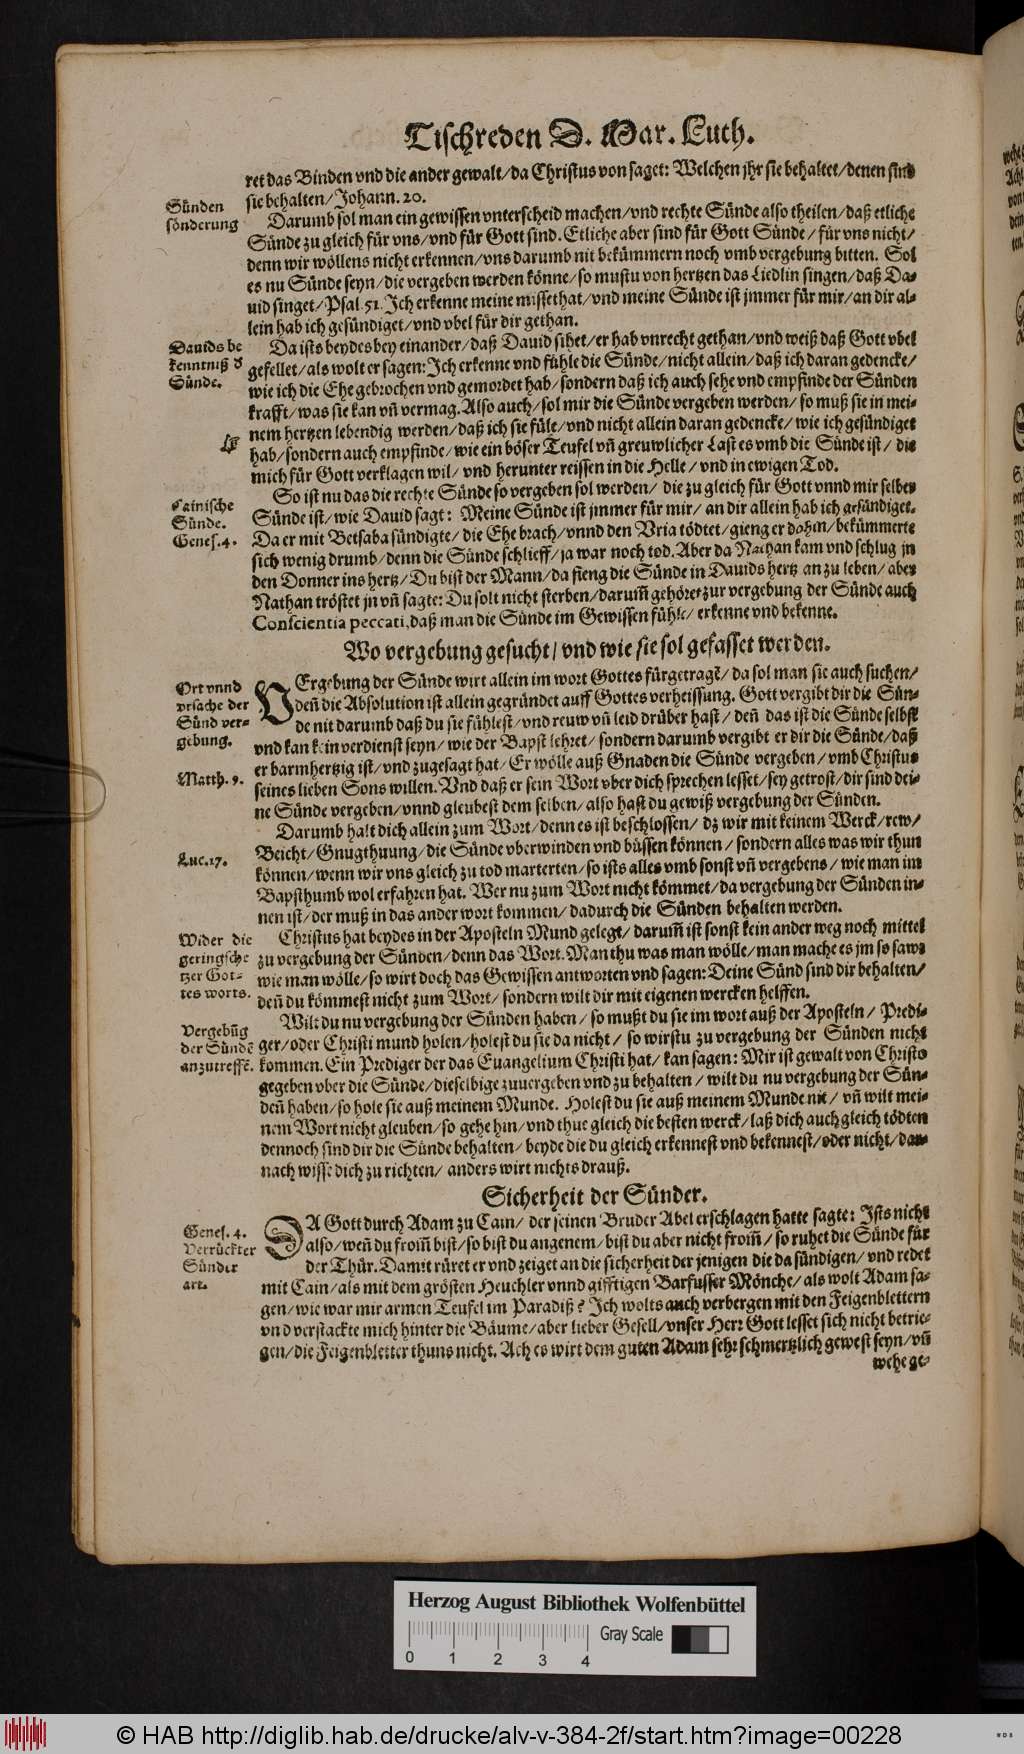 Tischreden D. Mar. Luth.
ret das Binden vnd die ander gewalt/da Christus von saget: Welchen jhr sie behaltet/denen sind
sie behalten/Johann. 20.
Sünden
sönderung
Darumb sol man ein gewissen vnterscheid machen/vnd rechte Sünde also theilen/daß etliche
Sünde zu gleich für vns/vnd für Gott sind. Etliche aber sind für Gott Sünde/für vns nicht/
denn wir wöllens nicht erkennen/vns darumb nit bekümmern noch vmb vergebung bitten. Sol
es nu Sünde seyn/die vergeben werden könne/so mustu von hertzen das Liedlin singen/daß Da-
uid singet/Psal. 51. Ich erkenne meine missethat/vnd meine Sünde ist jmmer für mir/an dir al-
lein hab ich gesündiget/vnd vbel für dir gethan.
Dauids be
kenntniß d
Sünde.
Da ists beydes bey einander/daß Dauid sihet/er hab vnrecht gethan/vnd weiß daß Gott vbel
gefellet/als wolt er sagen: Ich erkenne vnd fühle die Sünde/nicht allein/daß ich daran gedencke/
wie ich die Ehe gebrochen vnd gemordet hab/sondern daß ich auch sehe vnd empfinde der Sünden
krafft/was sie kan vñ vermag. Also auch/sol mir die Sünde vergeben werden/so muß sie in mei-
nem hertzen lebendig werden/daß ich sie füle/vnd nicht allein daran gedencke/wie ich gesündiget
hab/sondern auch empfinde/wie ein böser Teufel vñ greuwlicher Last es vmb die Sünde ist/die
mich für Gott verklagen wil/vnd herunter reissen in die Helle/vnd in ewigen Tod.
Cainische
Sünde.
Genes. 4.
So ist nu das die rechte Sünde so vergeben sol werden/die zu gleich für Gott vnnd mir selber
Sünde ist/wie Dauid sagt: Meine Sünde ist jmmer für mir/an dir allein hab ich gesündiget.
Da er mit Betsaba sündigte/die Ehe brach/vnnd den Vria tödtet/gieng er dahin/bekümmerte
sich wenig drumb/denn die Sünde schlieff/ja war noch tod. Aber da Nathan kam vnd schlug jn
den Donner ins hertz/Du bist der Mann/da fieng die Sünde in Dauids hertz an zu leben/aber
Nathan tröstet jn vñ sagte: Du solt nicht sterben/darum̃ gehöret zur vergebung der Sünde auch
Conscientia peccati, daß man die Sünde im Gewissen fühle/erkenne vnd bekenne.
Wo vergebung gesucht/vnd wie sie sol gefasset werden.
Ort vnnd
vrsache der
Sünd ver-
gebung.
Matth. 9.
VErgebung der Sünde wirt allein im wort Gottes fürgetragẽ/da sol man sie auch suchen/
deñ die Absolution ist allein gegründet auff Gottes verheissung. Gott vergibt dir die Sün-
de nit darumb daß du sie fühlest/vnd reuw vñ leid drüber hast/deñ das ist die Sünde selbst
vnd kan kein verdienst seyn/wie der Bapst lehret/sondern darumb vergibt er dir die Sünde/daß
er barmhertzig ist/vnd zugesagt hat/Er wölle auß Gnaden die Sünde vergeben/vmb Christus
seines lieben Sons willen. Vnd daß er sein Wort vber dich sprechen lesset/sey getrost/dir sind dei-
ne Sünde vergeben/vnnd gleubest dem selben/also hast du gewiß vergebung der Sünden.
Luc. 17.
Darumb halt dich allein zum Wort/denn es ist beschlossen/dz wir mit keinem Werck/rew/
Beicht/Gnugthuung/die Sünde vberwinden vnd büssen können/sondern alles was wir thun
können/wenn wir vns gleich zu tod marterten/so ists alles vmb sonst vñ vergebens/wie man im
Bapsthumb wol erfahren hat. Wer nu zum Wort nicht kömmet/da vergebung der Sünden in-
nen ist/der muß in das ander wort kommen/dadurch die Sünden behalten werden.
Wider die
geringsche
tzer Got-
tes worts.
Christus hat beydes in der Aposteln Mund gelegt/darum̃ ist sonst kein ander weg noch mittel
zu vergebung der Sünden/denn das Wort. Man thu was man wölle/man mache es jm so sawr
wie man wölle/so wirt doch das Gewissen antworten vnd sagen: Deine Sünd sind dir behalten/
deñ du kömmest nicht zum Wort/sondern wilt dir mit eigenen wercken helffen.
Vergebũg
der Sündẽ
anzutreffẽ.
Wilt du nu vergebung der Sünden haben/so mußt du sie im wort auß der Aposteln/Predi-
ger/oder Christi mund holen/holest du sie da nicht/so wirstu zu vergebung der Sünden nicht
kommen. Ein Prediger der das Euangelium Christi hat/kan sagen: Mir ist gewalt von Christo
gegeben vber die Sünde/dieselbige zuuergeben vnd zu behalten/wilt du nu vergebung der Sün-
deñ haben/so hole sie auß meinem Munde. Holest du sie auß meinem Munde nit/vñ wilt mei-
nem Wort nicht gleuben/so gehe hin/vnd thue gleich die besten werck/laß dich auch gleich tödten
dennoch sind dir die Sünde behalten/beyde die du gleich erkennest vnd bekennest/oder nicht/dar-
nach wisse dich zu richten/anders wirt nichts drauß.
Sicherheit der Sünder.
Genes. 4.
Verrückter
Sünder
art.
DA Gott durch Adam zu Cain/der seinen Bruder Abel erschlagen hatte sagte: Ists nicht
also/weñ du from̃ bist/so bist du angenem/bist du aber nicht from̃/so ruhet die Sünde für
der Thür. Damit rüret er vnd zeiget an die sicherheit der jenigen die da sündigen/vnd redet
mit Cain/als mit dem grösten Heuchler vnnd gifftigen Barfusser Mönche/als wolt Adam sa-
gen/wie war mir armen Teufel im Paradiß? Ich wolts auch verbergen mit den Feigenblettern
vnd verstackte mich hinter die Bäume/aber lieber Gesell/vnser Herr Gott lesset sich nicht betrie-
gen/die Feigenbletter thuns nicht. Ach es wirt dem guten Adam sehr schmertzlich gewest seyn/vñ
wehe ge-
Herzog August Bibliothek Wolfenbüttel
Gray Scale
0 1 2 3 4
© HAB http://diglib.hab.de/drucke/alv-v-384-2f/start.htm?image=00228